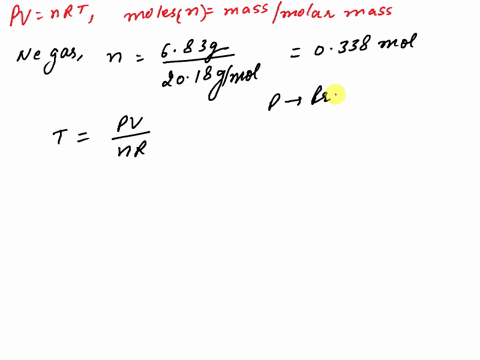 PV = nRT, moles(n) = mass/molar mass
Ne gas, n = 6.83g / 20.18 g/mol = 0.338 mol
P → Pr
T = PV / nR